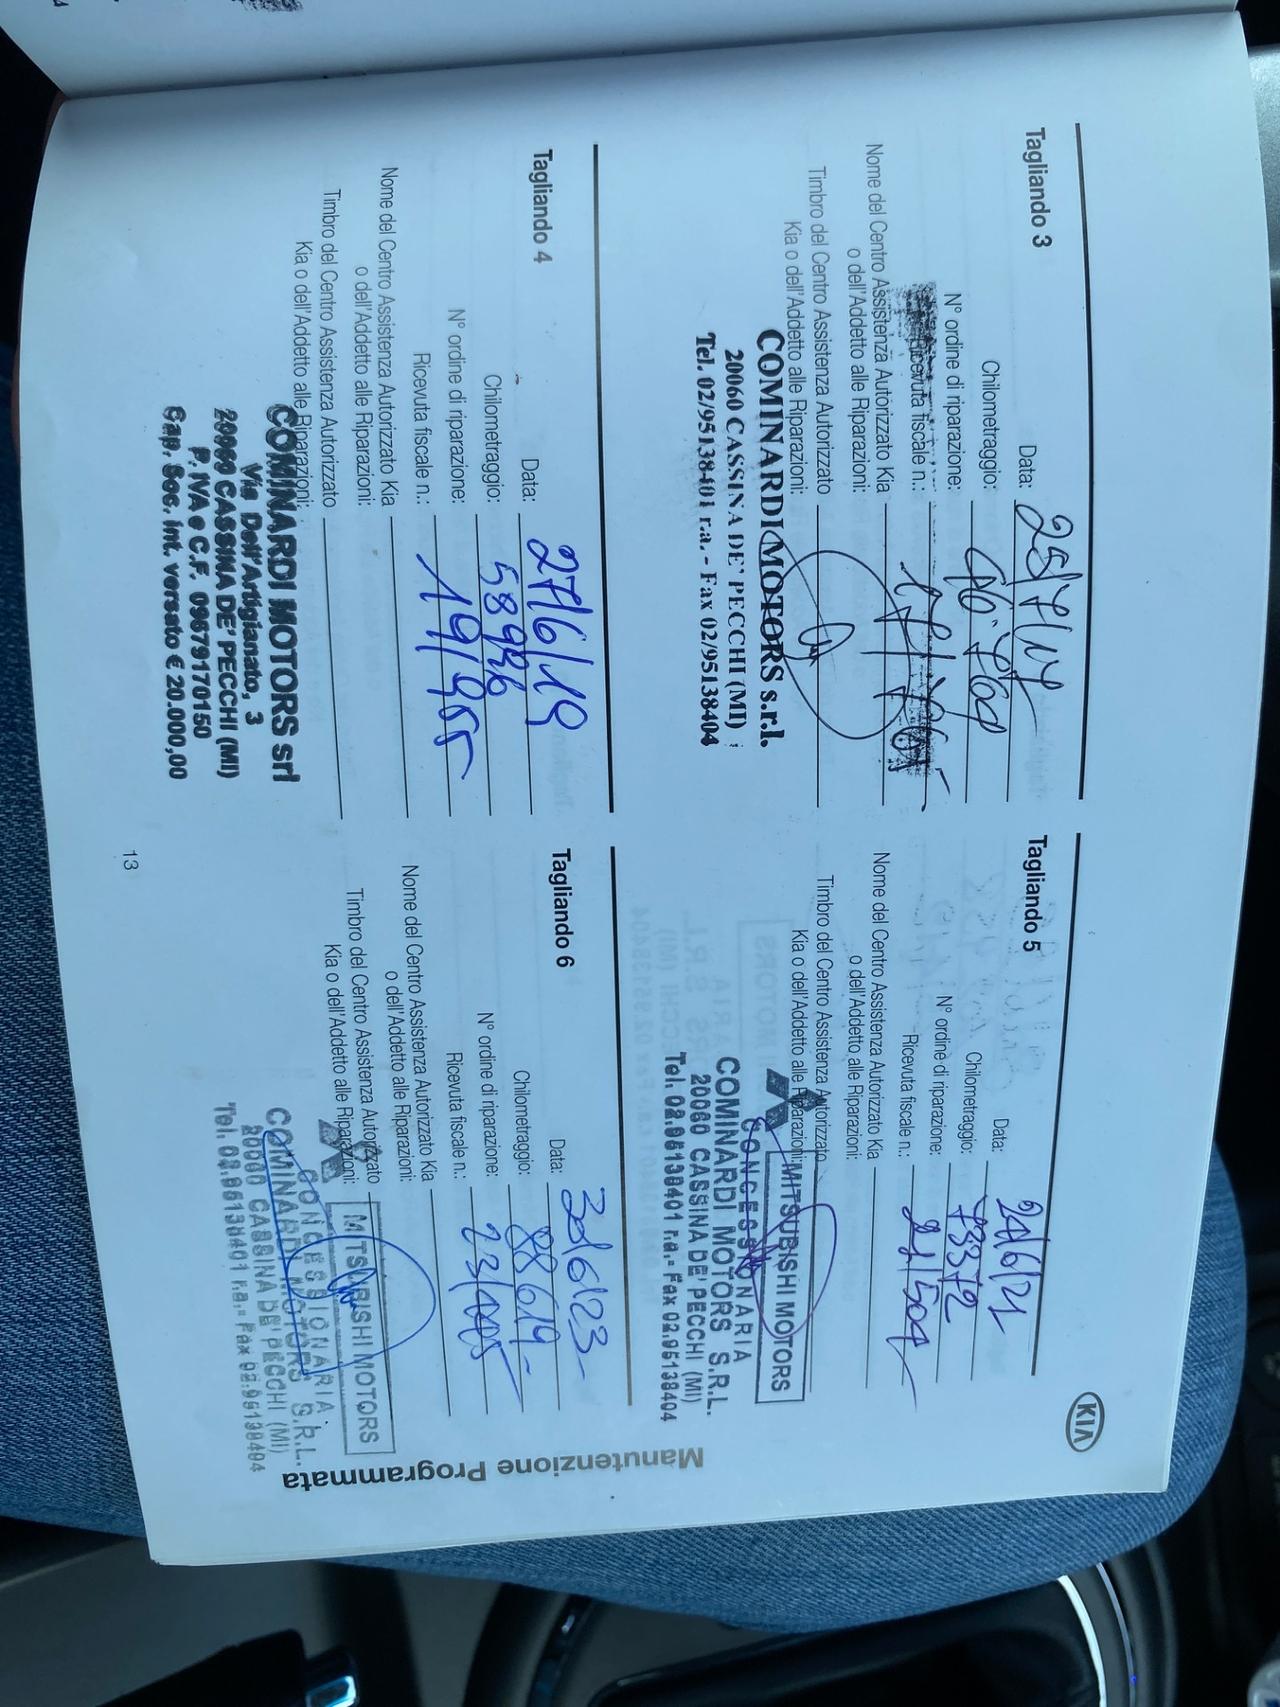 KIA
Manutenzione Programmata
Tagliando 3
Data: 25/7/17
Chilometraggio:
N° ordine di riparazione:
Ricevuta fiscale n.:
Nome del Centro Assistenza Autorizzato Kia
o dell'Addetto alle Riparazioni:
Timbro del Centro Assistenza Autorizzato
Kia o dell'Addetto alle Riparazioni:
COMINARDI MOTORS s.r.l.
20060 CASSINA DE' PECCHI (MI)
Tel. 02/95138401 r.a. - Fax 02/95138404
Tagliando 4
Data: 27/6/19
Chilometraggio: 58926
N° ordine di riparazione: 19/955
Ricevuta fiscale n.:
Nome del Centro Assistenza Autorizzato Kia
o dell'Addetto alle Riparazioni:
Timbro del Centro Assistenza Autorizzato
Kia o dell'Addetto alle Riparazioni:
COMINARDI MOTORS srl
Via Dell'Artigianato, 3
20060 CASSINA DE' PECCHI (MI)
P. IVA e C.F. 09679170150
Cap. Soc. int. versato € 20.000,00
Tagliando 5
Data: 24/6/21
Chilometraggio: 73372
N° ordine di riparazione: 21/504
Ricevuta fiscale n.:
Nome del Centro Assistenza Autorizzato Kia
o dell'Addetto alle Riparazioni:
Timbro del Centro Assistenza Autorizzato
Kia o dell'Addetto alle Riparazioni:
MITSUBISHI MOTORS
CONCESSIONARIA
COMINARDI MOTORS S.R.L.
20060 CASSINA DE' PECCHI (MI)
Tel. 02.95138401 r.a.- Fax 02.95138404
Tagliando 6
Data: 30/6/23
Chilometraggio: 88619
N° ordine di riparazione:
Ricevuta fiscale n.:
Nome del Centro Assistenza Autorizzato Kia
o dell'Addetto alle Riparazioni:
Timbro del Centro Assistenza Autorizzato
Kia o dell'Addetto alle Riparazioni:
MITSUBISHI MOTORS
CONCESSIONARIA
COMINARDI MOTORS S.R.L.
20060 CASSINA DE' PECCHI (MI)
Tel. 02.95138401 r.a.- Fax 02.95138404
13